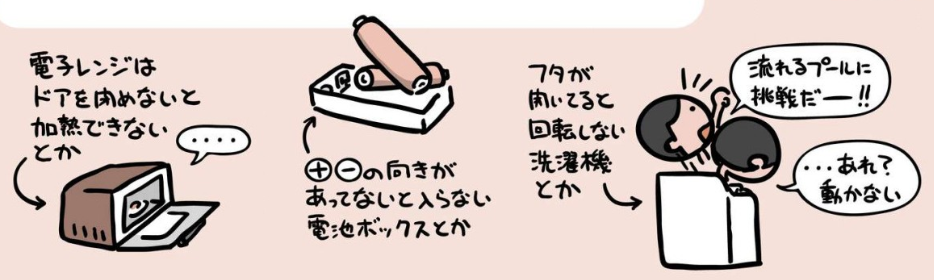 電子レンジは
ドアを閉めないと
加熱できない
とか
・・・・
⊕⊖の向きが
あってないと入らない
電池ボックスとか
フタが
開いてると
回転しない
洗濯機
とか
流れるプールに
挑戦だー!!
・・・あれ?
動かない